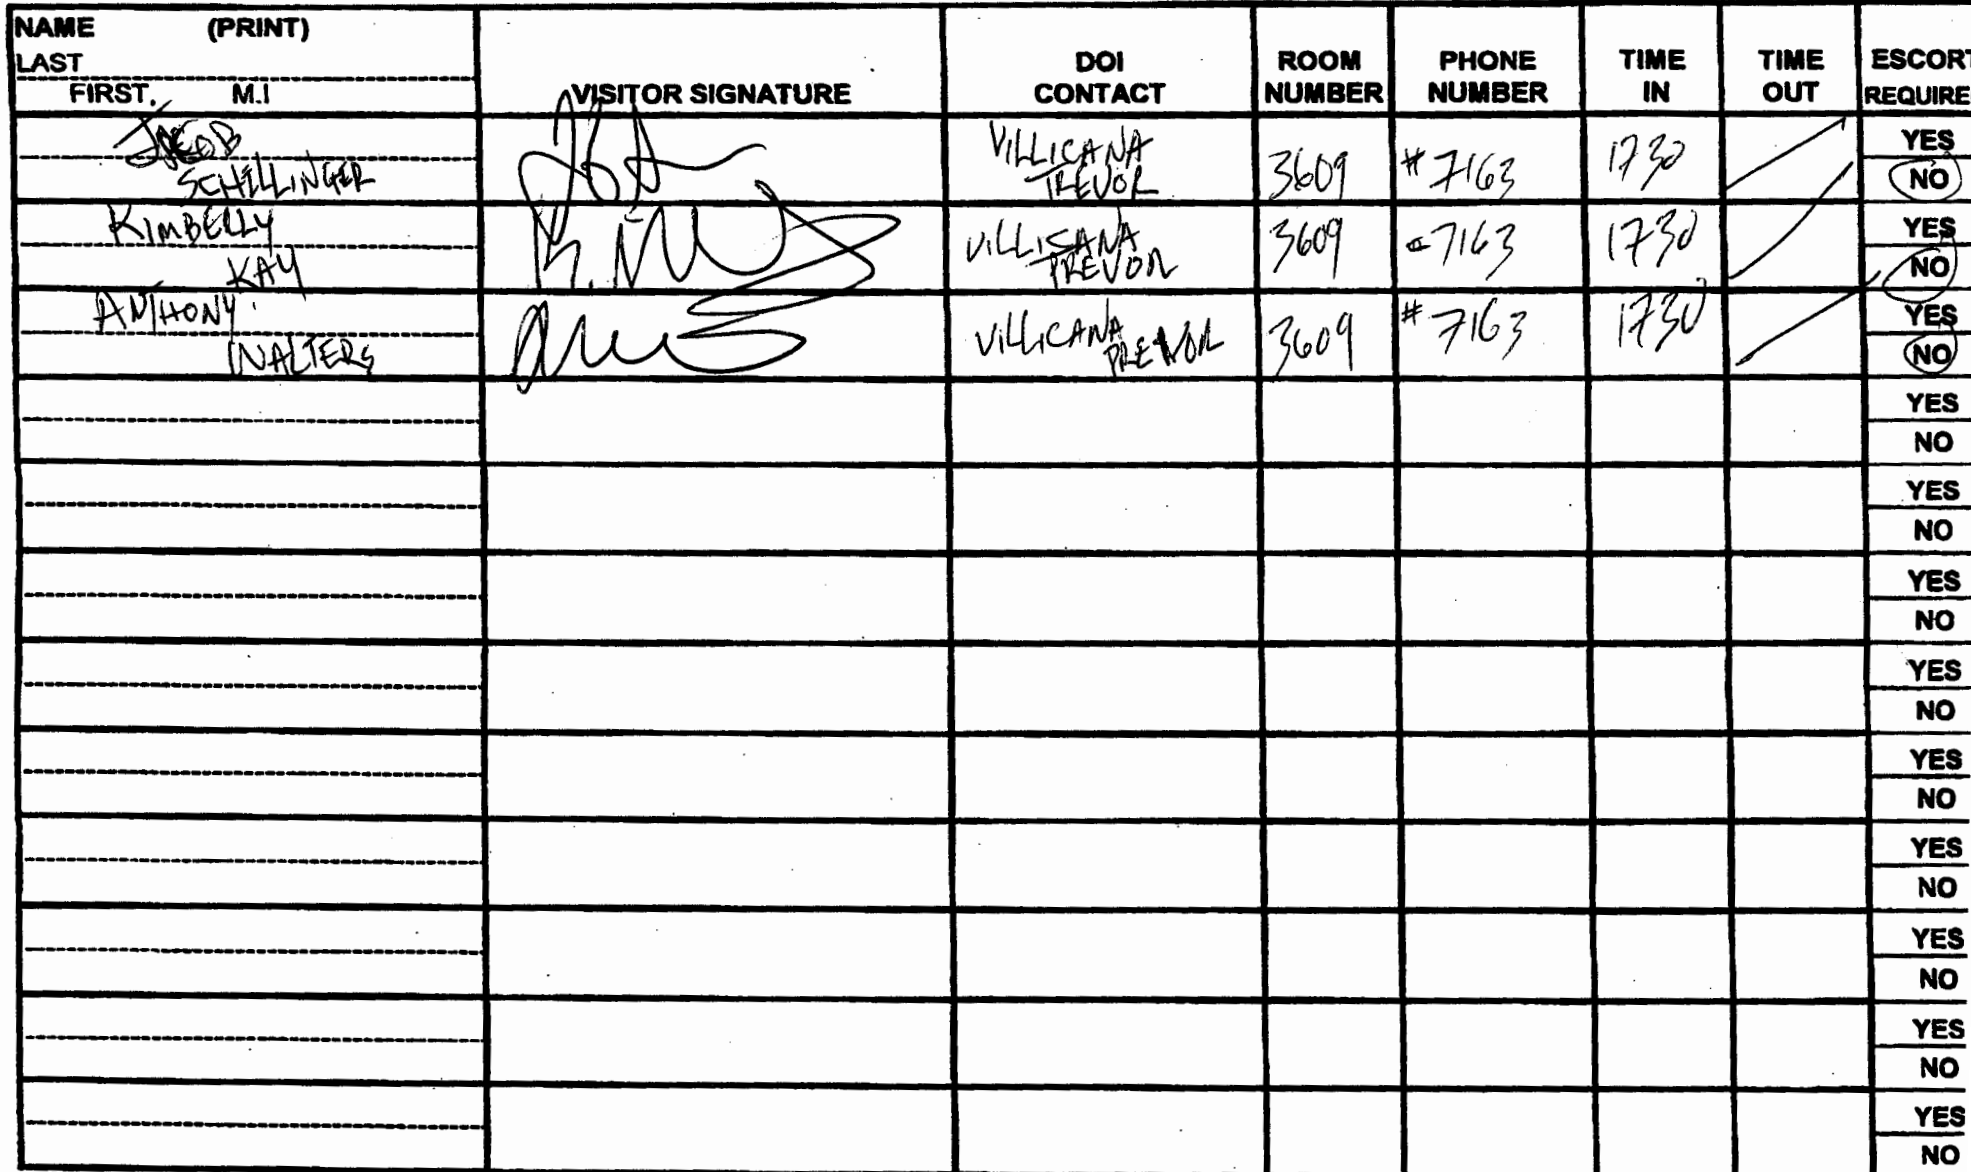 NAME (PRINT)
LAST
FIRST, M.I
VISITOR SIGNATURE
DOI
CONTACT
ROOM
NUMBER
PHONE
NUMBER
TIME
IN
TIME
OUT
ESCORT
REQUIRE
JACOB
SCHILLINGER
VILLICANA
TREVOR
3609
#7163
1730
YES
NO
KIMBERLY
KAY
VILLICANA
TREVOR
3609
#7163
1730
YES
NO
ANTHONY
WALTERS
VILLICANA
TREVOR
3609
#7163
1730
YES
NO
YES
NO
YES
NO
YES
NO
YES
NO
YES
NO
YES
NO
YES
NO
YES
NO
YES
NO